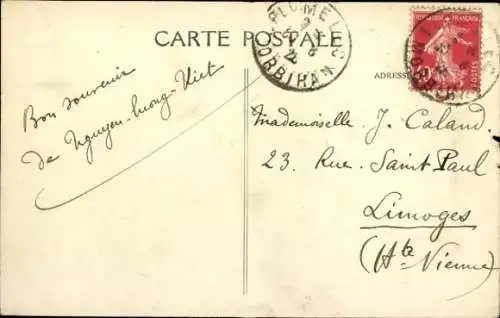 CARTE POSTALE
PLUMELEC
MORBIHAN
ADRESSE
Bon souvenir
de Nguyen-luong-Viet
Mademoiselle J. Caland
23 Rue Saint Paul
Limoges
(Hte Vienne)